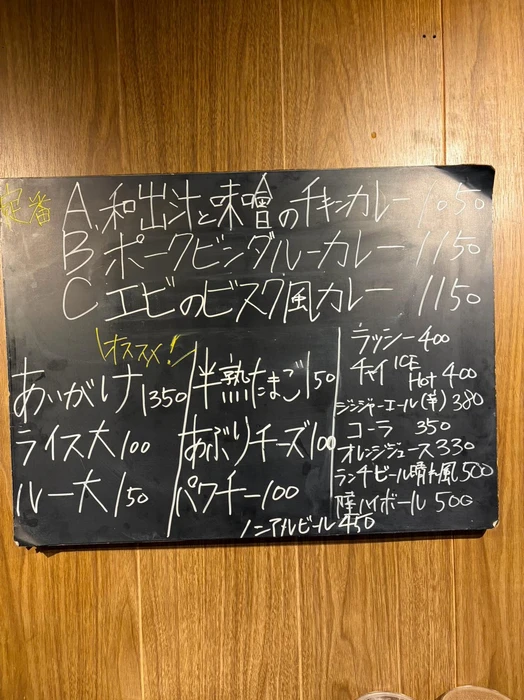 定番
A. 和出汁と味噌のチキンカレー 1050
B ポークビンダルーカレー 1150
C エビのビスク風カレー 1150
オススメ!
あいがけ 1350
ライス大 100
ルー大 150
半熟たまご 150
あぶりチーズ 100
パクチー 100
ノンアルビール 450
ラッシー 400
チャイ ICE Hot 400
ジンジャーエール(辛) 380
コーラ 350
オレンジジュース 330
ランチビール晴れ風 500
ハイボール 500